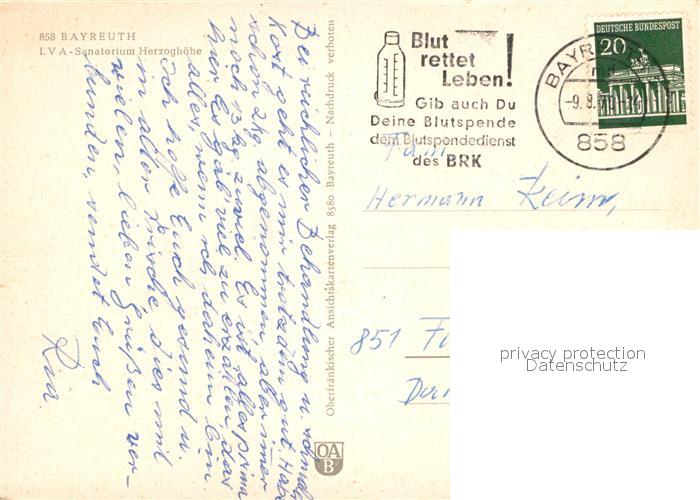 858 BAYREUTH
LVA-Sanatorium Herzoghöhe
Bei reichlicher Behandlung u. schmal
Kost geht es mir trotzdem gut. Habe
schon 2kg abgenommen, aber immer
noch 13 kg zuviel. Es ist alles prima
hier. Es gäb' viel zu erzählen, das
alles, wenn ich daheim bin
Ich hoffe Euch gesund u.
in aller Frische. Dies mit
vielen, lieben Grüßen ver-
bunden, sendet Euch
Ria
Oberfränkischer Ansichtskartenverlag 8580 Bayreuth — Nachdruck verboten
OA
B
Blut
rettet
Leben!
Gib auch Du
Deine Blutspende
dem Blutspendedienst
des BRK
BAYREUTH
-9.8.
858
20 DEUTSCHE BUNDESPOST
Fam.
Hermann Keim,
851
privacy protection
Datenschutz